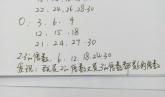 22.24.26.28.30
○: 3. 6. 9
12. 15. 18
21. 24. 27. 30
2.3的倍数: 6. 12. 18. 24. 30
发现: 既是2的倍数又是3的倍数都是6的倍数